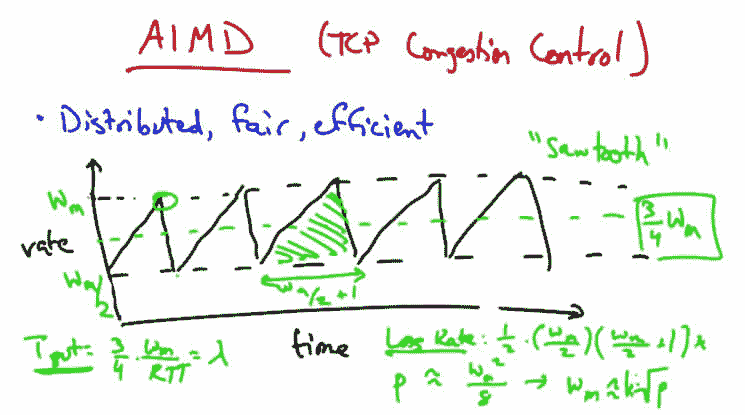 AIMD (TCP Congestion Control)
• Distributed, fair, efficient
"Sawtooth"
Wm
3/4 Wm
rate
Wm/2
Wm/2 + 1
time
Tput = 3/4 · Wm/RTT = λ
Loss Rate: 1/2 · (Wm/2)(Wm/2 + 1) +
p ≈ Wm²/8 → Wm ≈ k√p